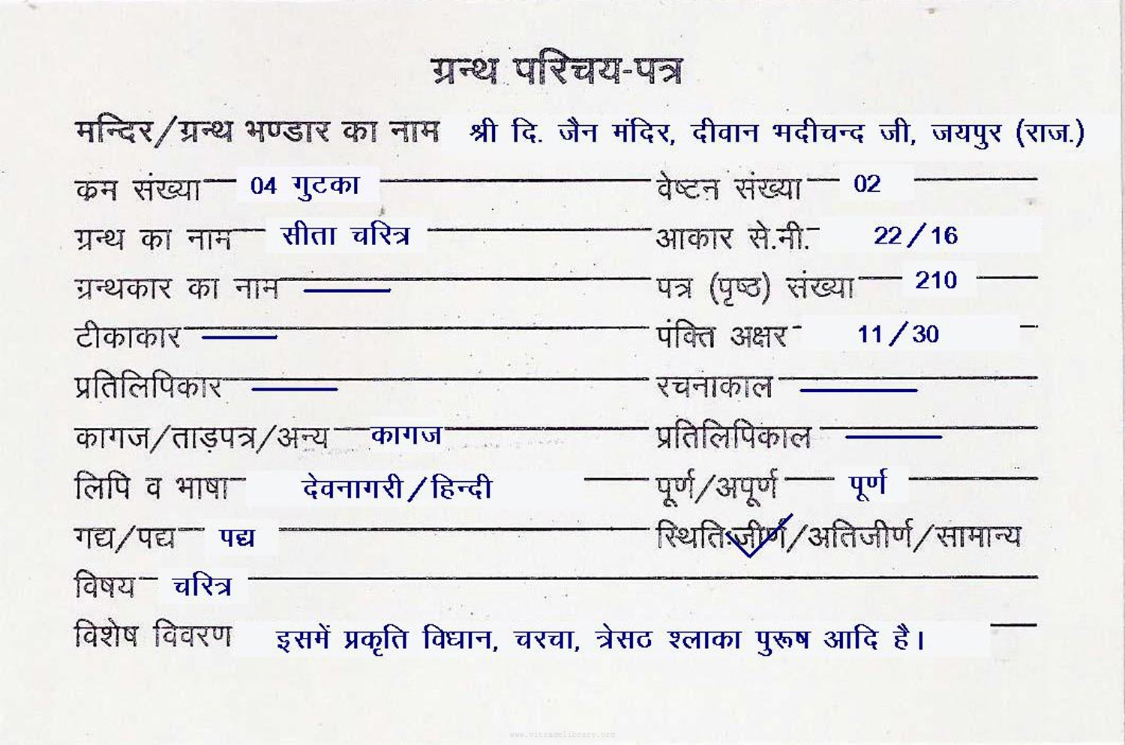 ग्रन्थ परिचय-पत्र
मन्दिर/ग्रन्थ भण्डार का नाम श्री दि. जैन मंदिर, दीवान भदीचन्द जी, जयपुर (राज.)
क्रम संख्या 04 गुटका वेष्टन संख्या 02
ग्रन्थ का नाम सीता चरित्र आकार से.मी. 22/16
ग्रन्थकार का नाम पत्र (पृष्ठ) संख्या 210
टीकाकार पंक्ति अक्षर 11/30
प्रतिलिपिकार रचनाकाल
कागज/ताड़पत्र/अन्य कागज प्रतिलिपिकाल
लिपि व भाषा देवनागरी/हिन्दी पूर्ण/अपूर्ण पूर्ण
गद्य/पद्य पद्य स्थिति:जीर्ण/अतिजीर्ण/सामान्य
विषय चरित्र
विशेष विवरण इसमें प्रकृति विधान, चरचा, त्रेसठ श्लाका पुरूष आदि है।